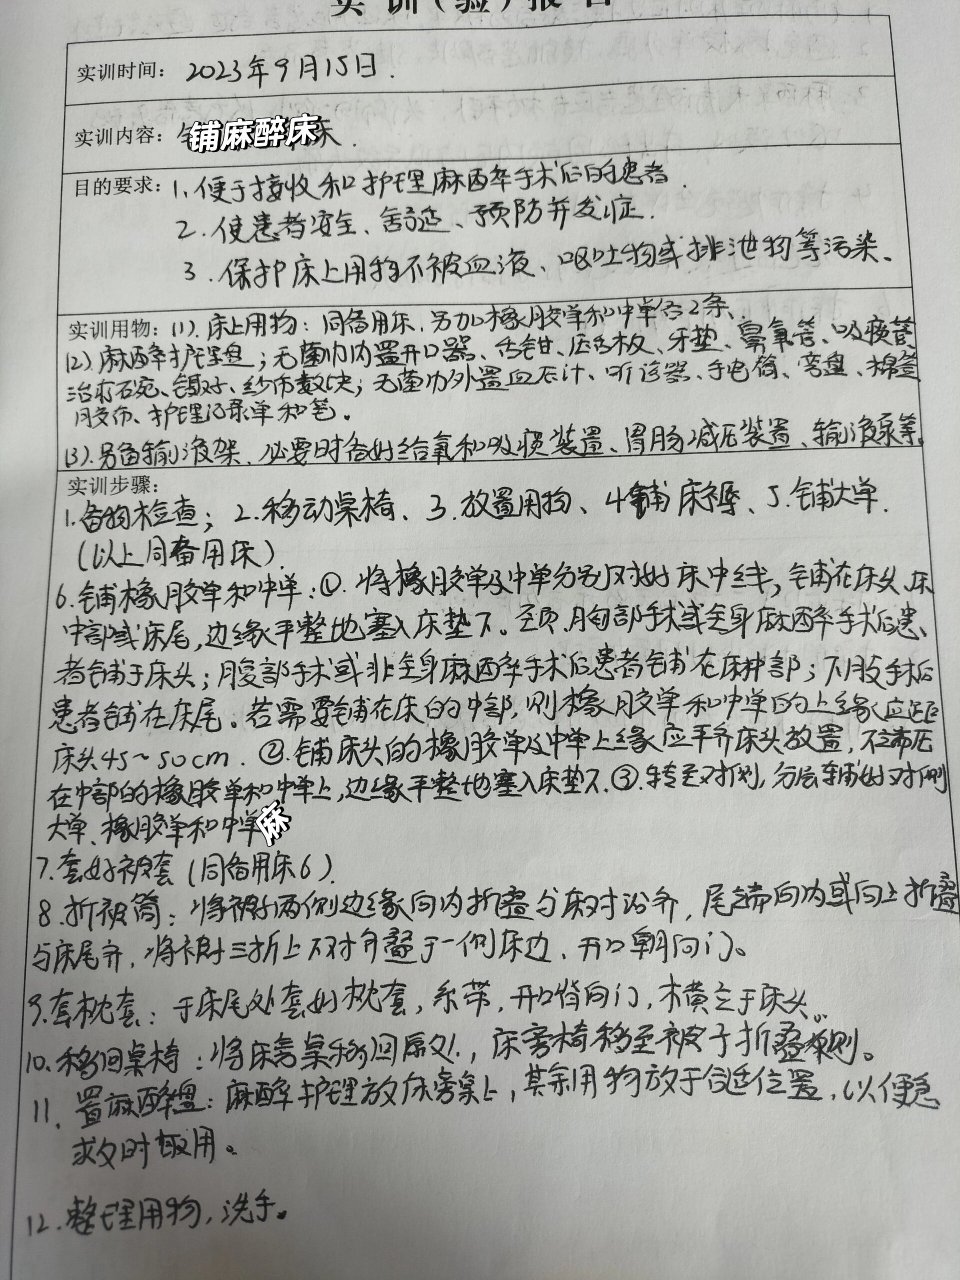 实训(验)报告
实训时间：2023年9月15日.
实训内容：铺麻醉床
目的要求：1.便于接收和护理麻醉手术后的患者.
2.使患者安全、舒适、预防并发症.
3.保护床上用物不被血液、呕吐物或排泄物等污染。
实训用物：(1).床上用物：同备用床，另加橡胶单和中单各2条、
(2).麻醉护理盘；无菌巾内置开口器、舌钳、压舌板、牙垫、鼻氧管、吸痰管
治疗碗、镊子、纱布数块；无菌巾外置血压计、听诊器、手电筒、弯盘、棉签
胶布、护理记录单和笔。
(3).另备输液架、必要时备好给氧和吸痰装置、胃肠减压装置、输液泵等.
实训步骤：
1.备物检查；2.移动桌椅、3.放置用物、4铺床褥、5.铺大单.
(以上同备用床).
6.铺橡胶单和中单：①.将橡胶单及中单分别对好床中线，铺在床头、床
中部或床尾，边缘平整地塞入床垫下。至颈.胸部手术或全身麻醉手术后患、
者铺于床头；腹部手术或非全身麻醉手术后患者铺在床中部；下肢手术后
患者铺在床尾。若需要铺在床的中部，则橡胶单和中单的上缘应距
床头45~50cm．②.铺床头的橡胶单及中单上缘应平齐床头放置，下端压
在中部的橡胶单和中单上，边缘平整地塞入床垫下.③.转至对侧，分层铺好对侧
大单、橡胶单和中单 麻
7.套好被套（同备用床6).
8.折被筒：将被子两侧边缘向内折叠与床对沿齐，尾端向内或向上折叠
与床尾齐，将被三折上下对齐叠于一侧床边，开口朝向门。
9.套枕套：于床尾处套好枕套，系带，开口背向门，横立于床头。
10.移回桌椅：将床旁桌移回原处，床旁椅移至被子折叠侧。
11.置麻醉盘：麻醉护理放床旁桌上，其余用物放于合适位置，以便急
救时取用。
12.整理用物，洗手。